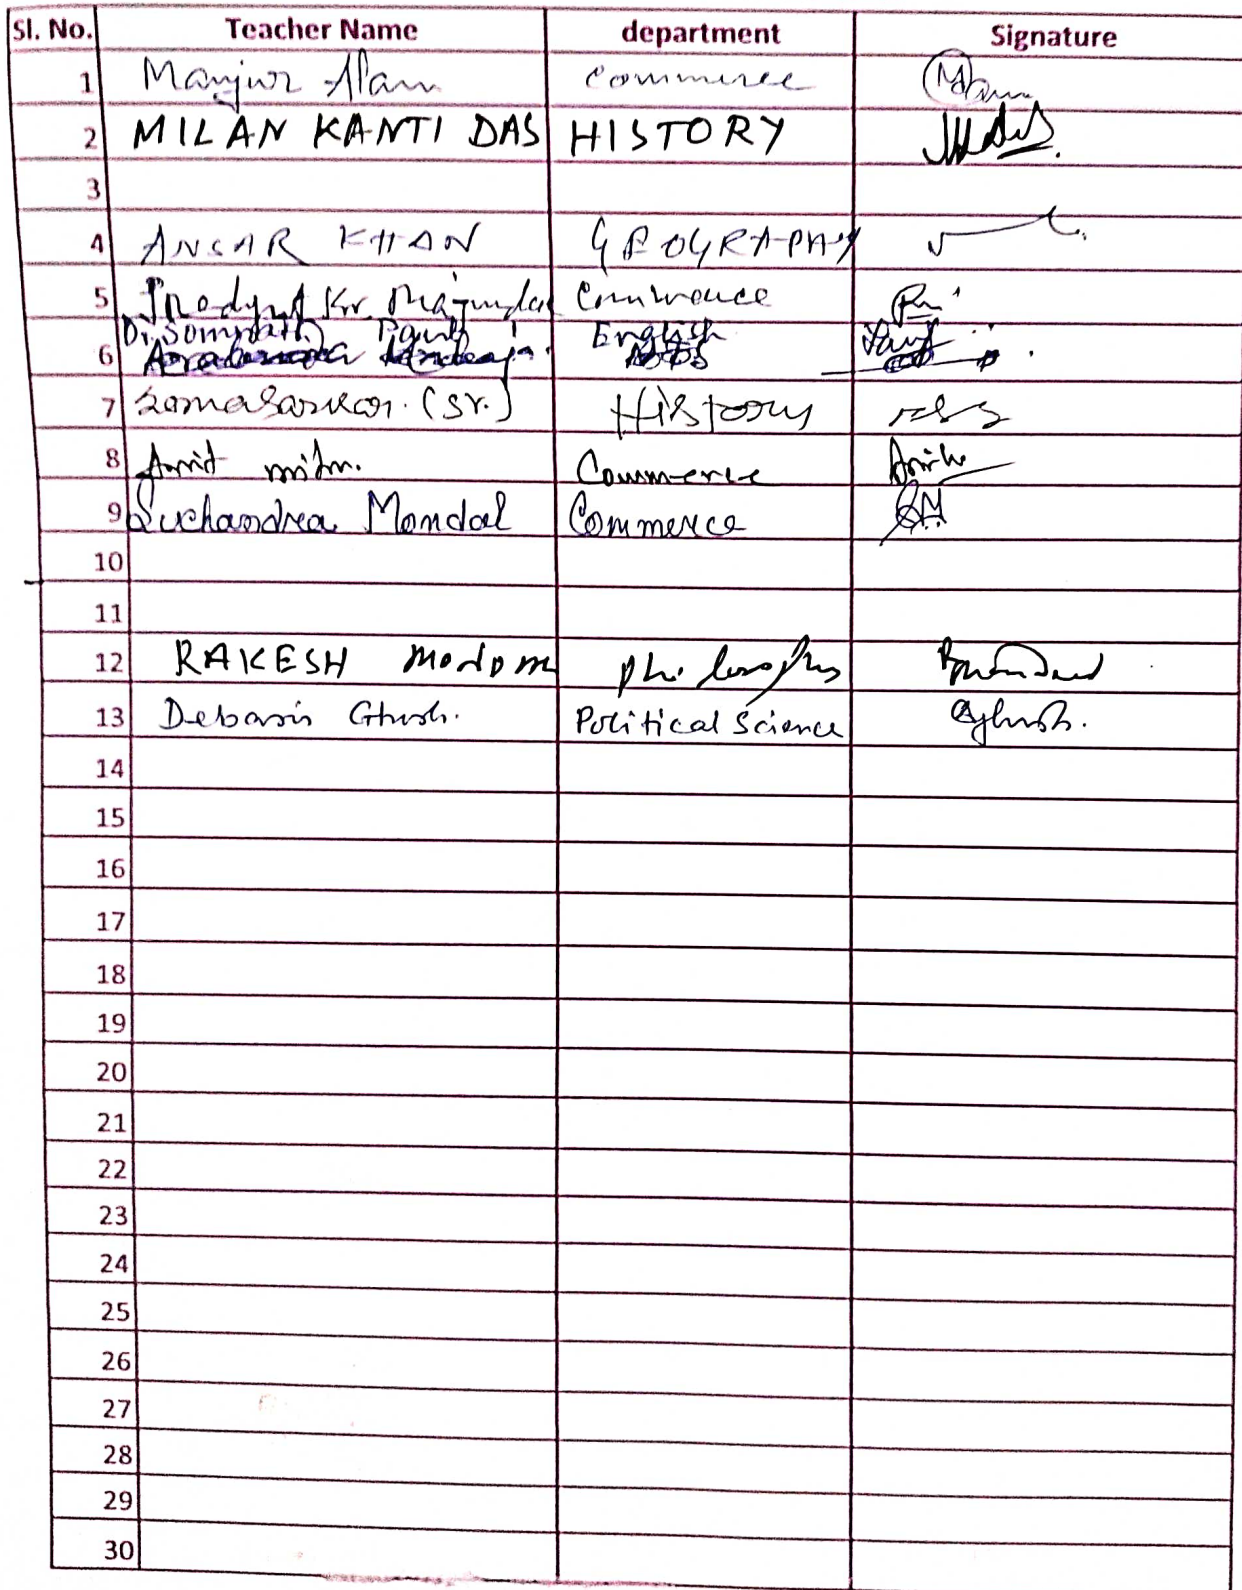 Sl. No. Teacher Name department Signature
1 Manjur Alam Commerce
2 MILAN KANTI DAS HISTORY
3
4 ANSAR KHAN GEOGRAPHY
5 Kr. Majumdar Commerce
Dr. Somnath English
6
7 (Sr.) History
8 Amit Commerce
9 Suchandra Mondal Commerce
10
11
12 RAKESH Philosophy
13 Debasis Ghosh. Political Science
14
15
16
17
18
19
20
21
22
23
24
25
26
27
28
29
30